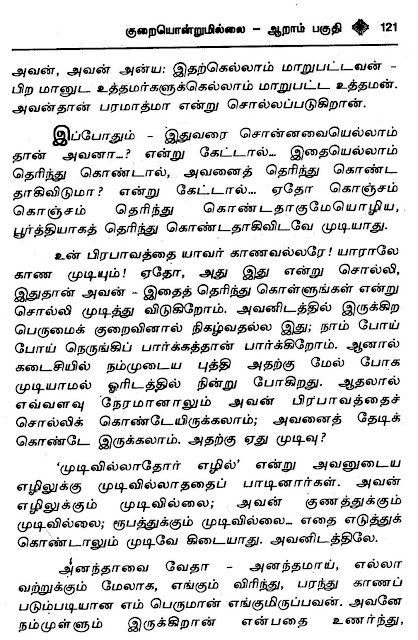 குறையொன்றுமில்லை – ஆறாம் பகுதி 121
அவன், அவன் அன்ய: இதற்கெல்லாம் மாறுபட்டவன் –
பிற மானுட உத்தமர்களுக்கெல்லாம் மாறுபட்ட உத்தமன்.
அவன்தான் பரமாத்மா என்று சொல்லப்படுகிறான்.
இப்போதும் – இதுவரை சொன்னவையெல்லாம்
தான் அவனா...? என்று கேட்டால்... இதையெல்லாம்
தெரிந்து கொண்டால், அவனைத் தெரிந்து கொண்ட
தாகிவிடுமா? என்று கேட்டால்... ஏதோ கொஞ்சம்
கொஞ்சம் தெரிந்து கொண்டதாகுமேயொழிய,
பூர்த்தியாகத் தெரிந்து கொண்டதாகிவிடவே முடியாது.
உன் பிரபாவத்தை யாவர் காணவல்லரே! யாராலே
காண முடியும்! ஏதோ, அது இது என்று சொல்லி,
இதுதான் அவன் – இதைத் தெரிந்து கொள்ளுங்கள் என்று
சொல்லி முடித்து விடுகிறோம். அவனிடத்தில் இருக்கிற
பெருமைக் குறைவினால் நிகழ்வதல்ல இது; நாம் போய்
போய் நெருங்கிப் பார்க்கத்தான் பார்க்கிறோம். ஆனால்
கடைசியில் நம்முடைய புத்தி அதற்கு மேல் போக
முடியாமல் ஓரிடத்தில் நின்று போகிறது. ஆதலால்
எவ்வளவு நேரமானாலும் அவன் பிரபாவத்தைச்
சொல்லிக் கொண்டேயிருக்கலாம்; அவனைத் தேடிக்
கொண்டே இருக்கலாம். அதற்கு ஏது முடிவு?
‘முடிவில்லாதோர் எழில்’ என்று அவனுடைய
எழிலுக்கு முடிவில்லாததைப் பாடினார்கள். அவன்
எழிலுக்கும் முடிவில்லை; அவன் குணத்துக்கும்
முடிவில்லை; ரூபத்துக்கும் முடிவில்லை... எதை எடுத்துக்
கொண்டாலும் முடிவே கிடையாது. அவனிடத்திலே.
அனந்தாவை வேதா – அனந்தமாய், எல்லா
வற்றுக்கும் மேலாக, எங்கும் விரிந்து, பரந்து காணப்
படும்படியான எம் பெருமான் எங்குமிருப்பவன். அவனே
நம்முள்ளும் இருக்கிறான் என்பதை உணர்ந்து,